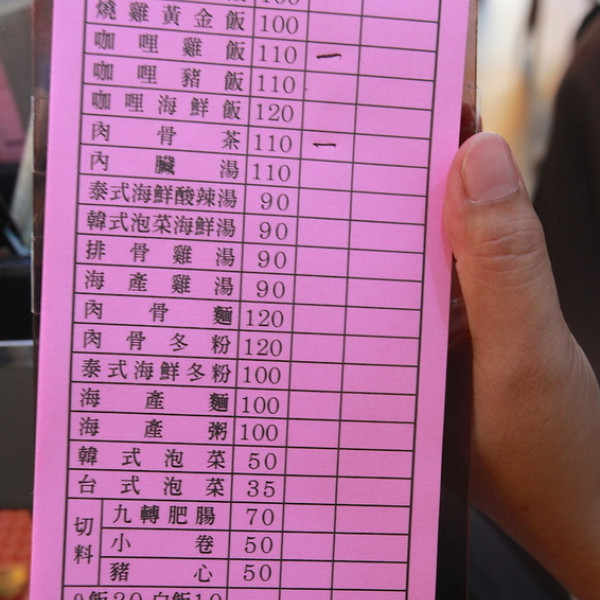 燒雞黃金飯 100
咖哩雞飯 110 一
咖哩豬飯 110
咖哩海鮮飯 120
肉骨茶 110 一
內臟湯 110
泰式海鮮酸辣湯 90
韓式泡菜海鮮湯 90
排骨雞湯 90
海產雞湯 90
肉骨麵 120
肉骨冬粉 120
泰式海鮮冬粉 100
海產麵 100
海產粥 100
韓式泡菜 50
台式泡菜 35
切料
九轉肥腸 70
小卷 50
豬心 50
飯20 白飯10